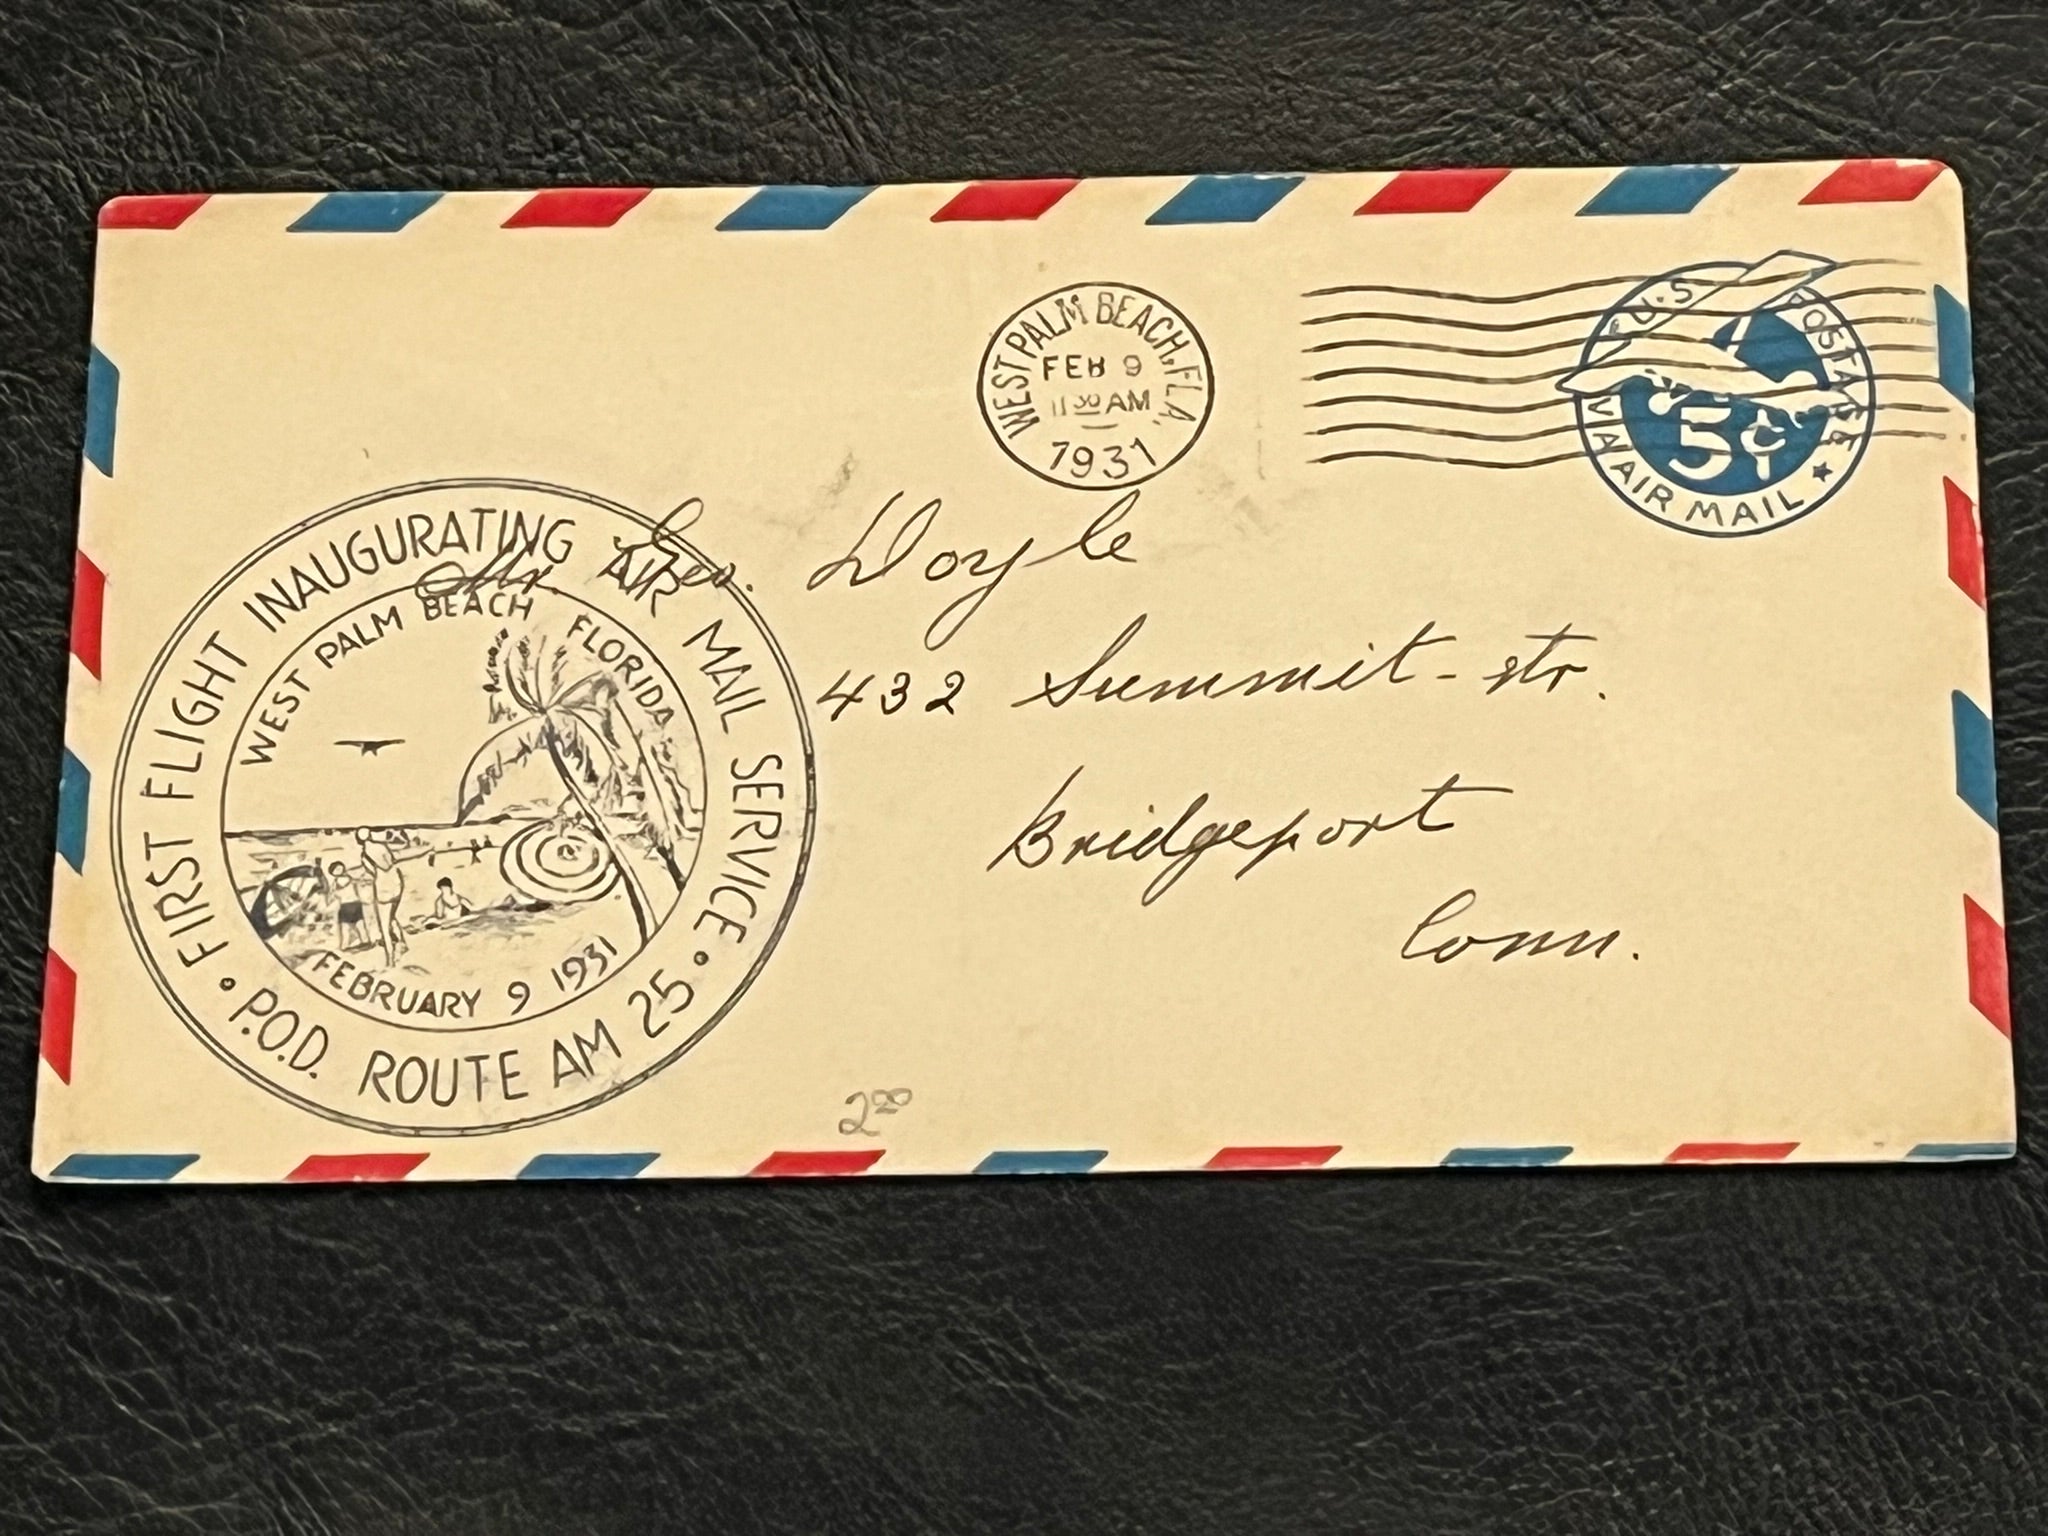 WEST PALM BEACH, FLA.
FEB 9
11 30 AM
1931
U.S. POSTAGE
5¢
VIA AIR MAIL
FIRST FLIGHT INAUGURATING AIR MAIL SERVICE
WEST PALM BEACH FLORIDA
FEBRUARY 9 1931
• P.O.D. ROUTE AM 25 •
Mr. Geo. Doyle
432 Summit-str.
Bridgeport
Conn.
2 00